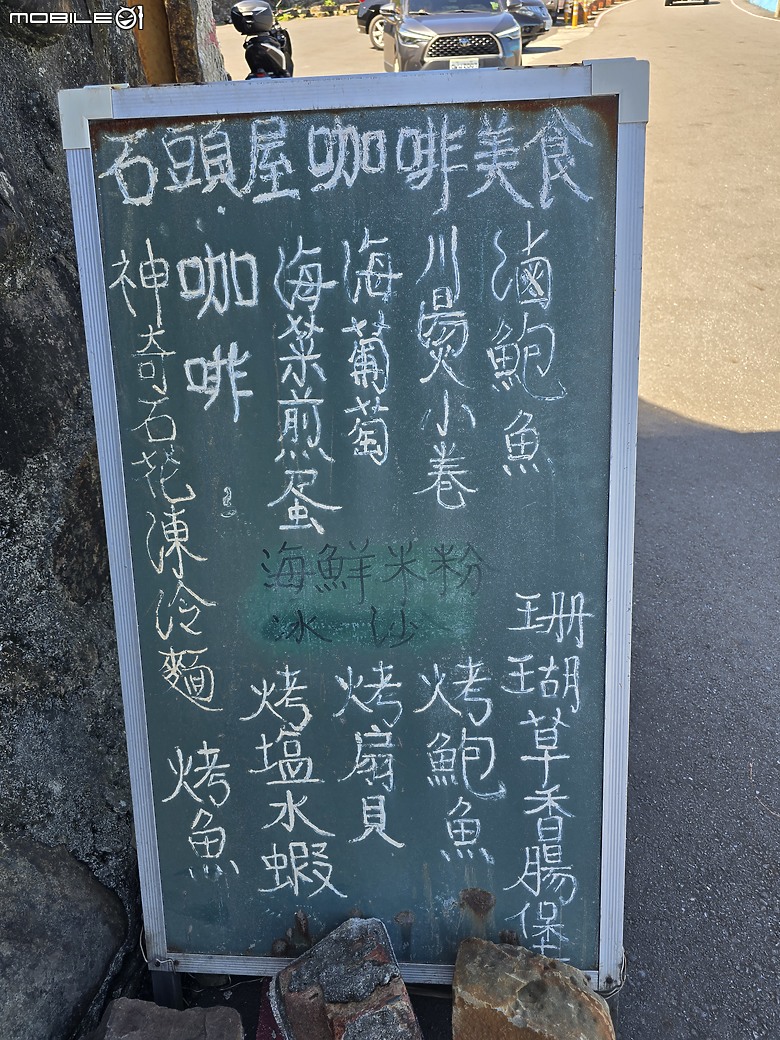 MOBILE01
石頭屋咖啡美食
滷鮑魚
川燙小卷
海葡萄
海菜煎蛋
咖啡
神奇石花凍冷麵
海鮮米粉
冰沙
珊瑚草香腸堡
烤鮑魚
烤扇貝
烤塩水蝦
烤魚